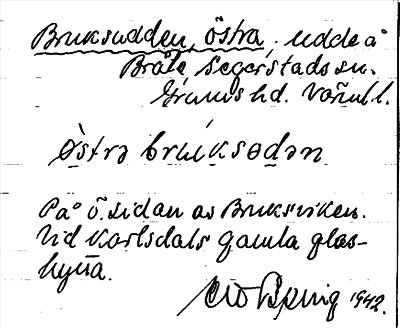 Bruksudden, östra, udde å
Bråtå, Segerstads sn.
Grums hd. Värml.
östrə bruksədən
På ö. sidan av Bruksviken.
Vid Karlsdals gamla glas-
hytta.
1942.